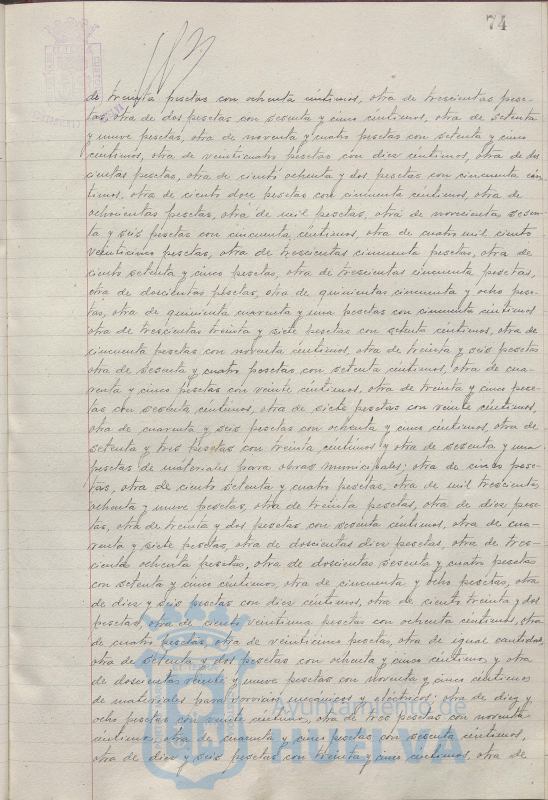 74
de treinta pesetas con ochenta céntimos, otra de trescientas pese-
tas, otra de dos pesetas con sesenta y cinco céntimos, otra de setenta
y nueve pesetas, otra de noventa y cuatro pesetas con setenta y cinco
céntimos, otra de veinticuatro pesetas con diez céntimos, otra de dos
cientas pesetas, otra de ciento ochenta y dos pesetas con cincuenta cén
timos, otra de ciento doce pesetas con cincuenta céntimos, otra de
ochocientas pesetas, otra de mil pesetas, otra de novecientas sesen-
ta y seis pesetas con cincuenta céntimos, otra de cuatro mil ciento
veinticinco pesetas, otra de trescientas cincuenta pesetas, otra de
ciento setenta y cinco pesetas, otra de trescientas cincuenta pesetas,
otra de doscientas pesetas, otra de quinientas cincuenta y ocho pese-
tas, otra de quinienta cuarenta y una pesetas con cincuenta céntimos
otra de trescientas treinta y siete pesetas con setenta céntimos, otra de
cincuenta pesetas con noventa céntimos, otra de treinta y seis pesetas
otra de sesenta y cuatro pesetas con setenta céntimos, otra de cua-
renta y cinco pesetas con veinte céntimos, otra de treinta y cinco pese-
tas con sesenta céntimos, otra de siete pesetas con veinte céntimos,
otra de cuarenta y seis pesetas con ochenta y cinco céntimos, otra de
setenta y tres pesetas con treinta céntimos y otra de sesenta y una
pesetas de materiales para obras municipales; otra de cinco pese-
tas, otra de ciento setenta y cuatro pesetas, otra de mil trescientas
ochenta y nueve pesetas, otra de treinta pesetas, otra de diez pese-
tas, otra de treinta y dos pesetas con sesenta céntimos, otra de cua-
renta y siete pesetas, otra de doscientas diez pesetas, otra de tres-
cientas ochenta pesetas, otra de doscientas sesenta y cuatro pesetas
con setenta y cinco céntimos, otra de cincuenta y ocho pesetas, otra
de diez y seis pesetas con diez céntimos, otra de ciento treinta y dos
pesetas, otra de ciento veintiuna pesetas con ochenta céntimos, otra
de cuatro pesetas, otra de veinticinco pesetas, otra de igual cantidad,
otra de setenta y dos pesetas con ochenta y cinco céntimos y otra
de doscientas veinte y nueve pesetas con noventa y cinco céntimos
de materiales para servicios mecánicos y eléctricos; otra de diez y
ocho pesetas con veinte céntimos, otra de tres pesetas con noventa
céntimos, otra de cuarenta y cinco pesetas con sesenta céntimos,
otra de diez y seis pesetas con treinta y cinco céntimos, otra de
Ayuntamiento de
HUELVA